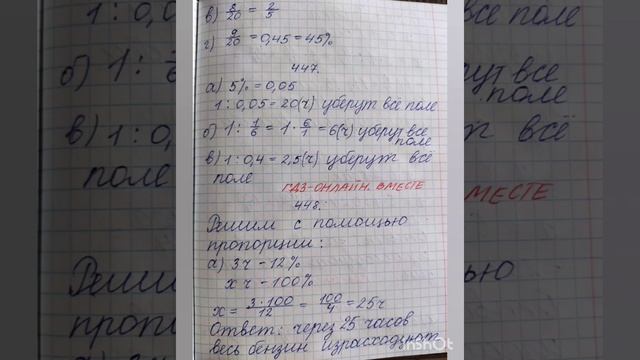 в) 8/20 = 2/5
г) 9/20 = 0,45 = 45%
447.
а) 5% = 0,05
1 : 0,05 = 20(ч) уберут всё поле
б) 1 : 1/6 = 1 · 6/1 = 6(ч) уберут все
поле
в) 1 : 0,4 = 2,5(ч) уберут всё
поле
ГДЗ-ОНЛАЙН. ВМЕСТЕ
448.
Решим с помощью
пропорции:
а) 3ч - 12%
х ч - 100%
х = 3·100/12 = 100/4 = 25ч
Ответ: через 25 часов
весь бензин израсходуют